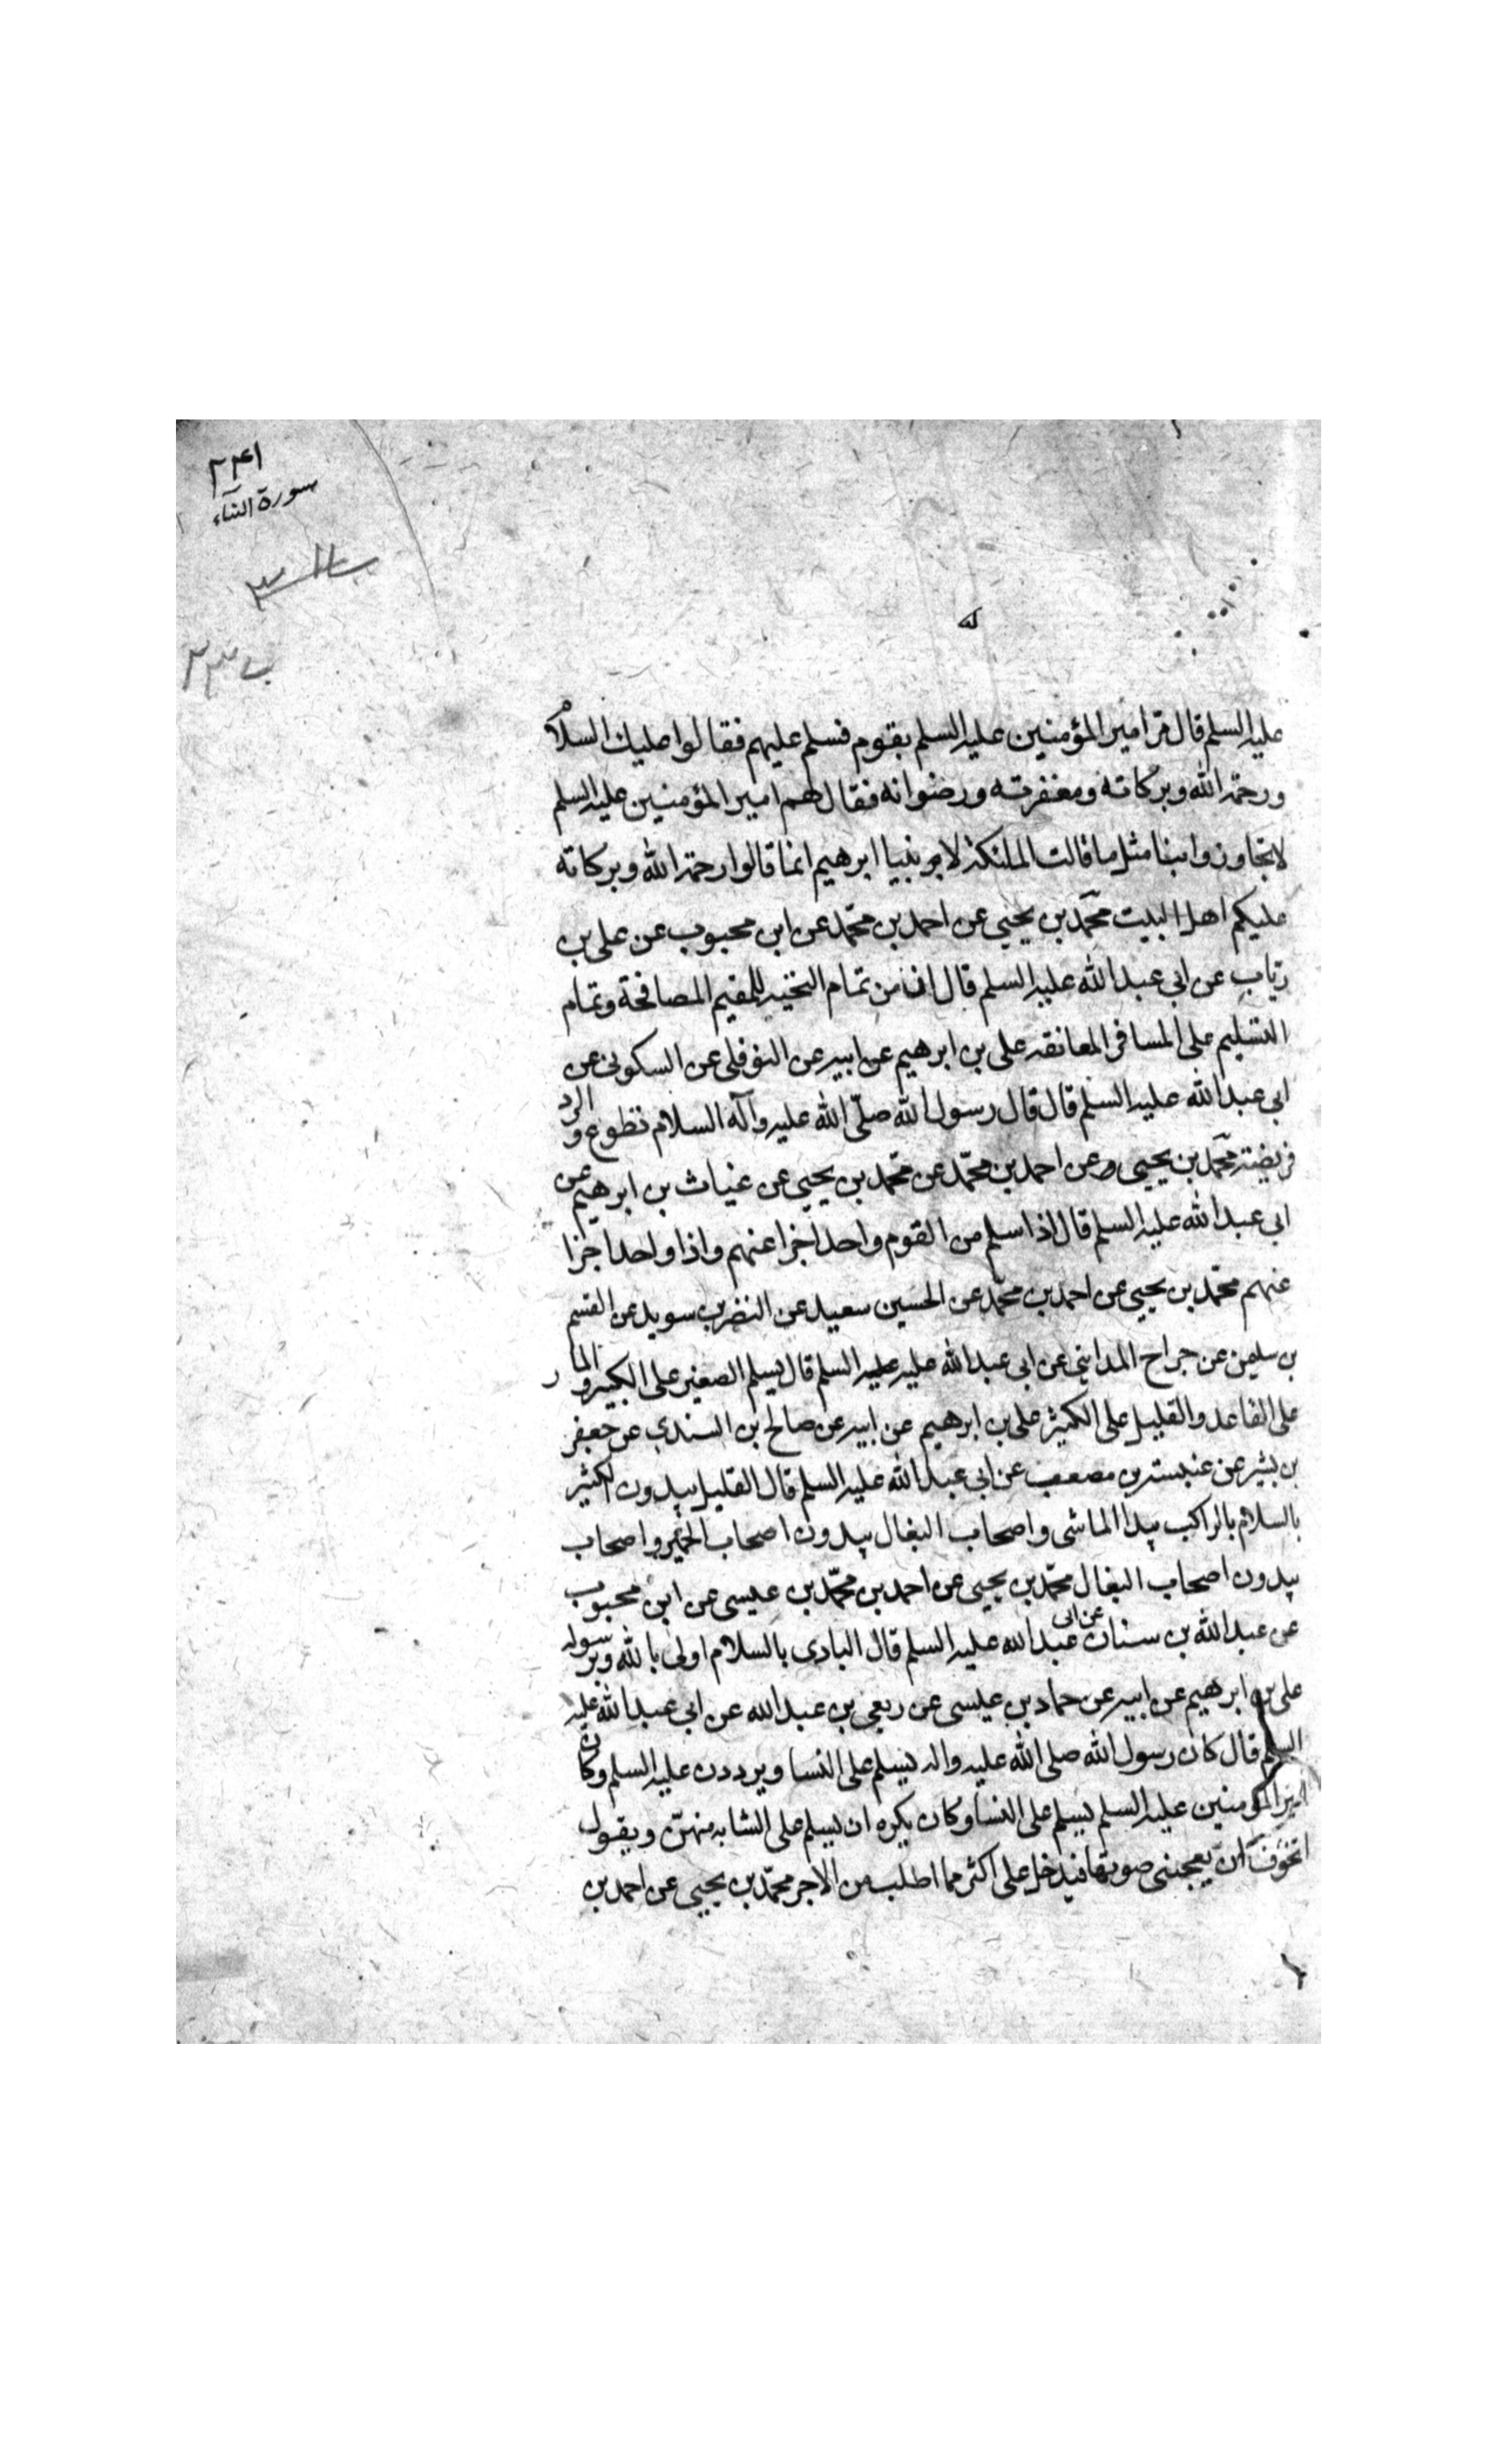 ٢٣٤١
سورة النساء
عليه السلم قال مر امير المؤمنين عليه السلم بقوم فسلم عليهم فقالوا عليك السلام
ورحمة الله وبركاته ومغفرته ورضوانه فقال لهم امير المؤمنين عليه السلم
لا تجاوزوا بنا مثل ما قالت الملئكة لابينا ابرهيم انما قالوا رحمة الله وبركاته
عليكم اهل البيت محمد بن يحيى عن احمد بن محمد عن ابن محبوب عن على بن
رئاب عن ابى عبد الله عليه السلم قال ان من تمام التحية للمقيم المصافحة وتمام
التسليم على المسافر المعانقة على بن ابرهيم عن ابيه عن النوفلى عن السكونى عن
ابى عبد الله عليه السلم قال قال رسول الله صلّى الله عليه وآله السلام تطوع والرد
فريضة محمد بن يحيى وعن احمد بن محمد عن محمد بن يحيى عن غياث بن ابرهيم عن
ابى عبد الله عليه السلم قال اذا سلم من القوم واحد اجزا عنهم واذا واحد اجزا
عنهم محمد بن يحيى عن احمد بن محمد عن الحسين سعيد عن النضر بن سويد عن القسم
بن سليمن عن جراح المداينى عن ابى عبد الله عليه عليه السلم قال يسلم الصغير على الكبير والمار
على القاعد والقليل على الكثير على بن ابرهيم عن ابيه عن صالح بن السندى عن جعفر
بن بشير عن عنبسة بن مصعب عن ابى عبد الله عليه السلم قال القليل يبدون الكثير
بالسلام بالراكب يبدا الماشى واصحاب البغال يبدون اصحاب الحمير واصحاب
يبدون اصحاب البغال محمد بن يحيى عن احمد بن محمد بن عيسى عن ابن محبوب
عن عبد الله بن سنان عن ابى عبد الله عليه السلم قال البادى بالسلام اولى بالله وبرسوله
على بن ابرهيم عن ابيه عن حماد بن عيسى عن ربعى بن عبد الله عن ابى عبد الله عليه
السلم قال كان رسول الله صلى الله عليه واله يسلم على النسا ويرددن عليه السلم وكان
امير المؤمنين عليه السلم يسلم على النسا وكان يكره ان يسلم على الشابه منهنّ ويقول
اتخوّف ان يعجبنى صوتها فيدخل على اكثر مما اطلب من الاجر محمد بن يحيى عن احمد بن